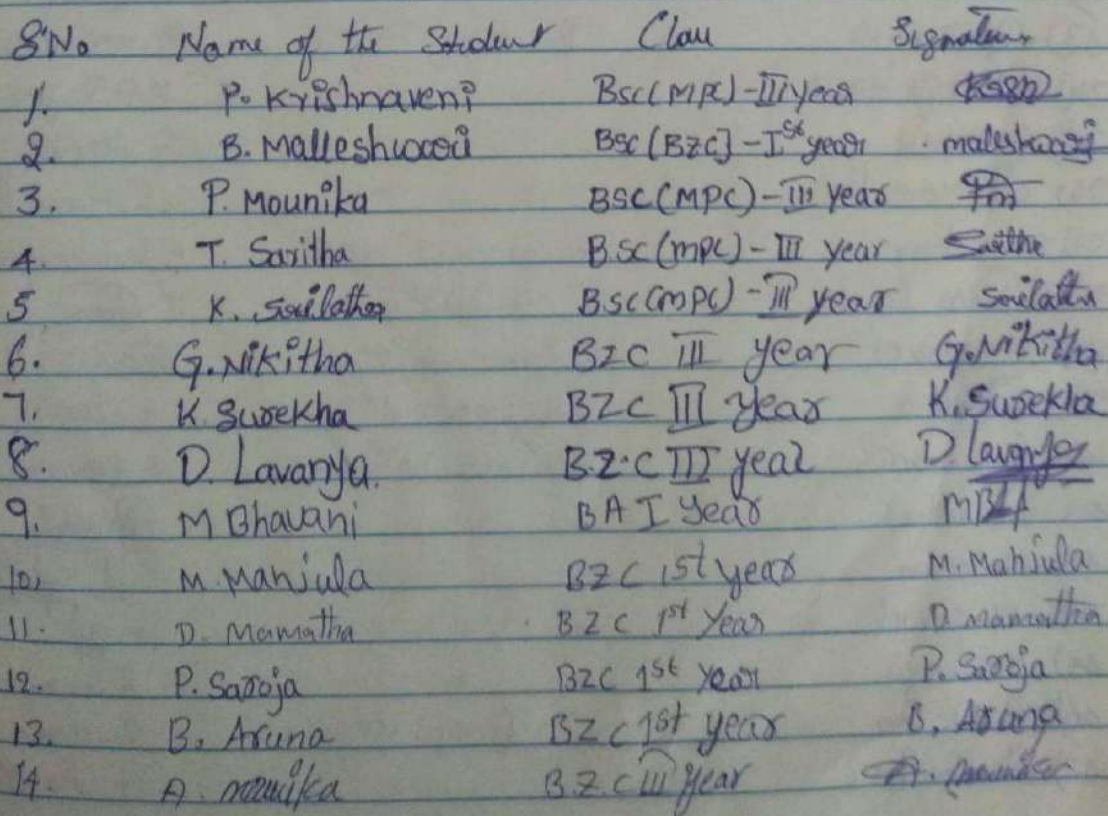 S.No Name of the Student Class Signature
1. P. Krishnaveni Bsc(MPC)-III year
2. B. Malleshwari Bsc(BZC)-Ist year malleshwari
3. P. Mounika BSC(MPC)-III year Pm
4. T. Saritha B.sc(mpc)-III year Saritha
5 K. Srilatha B.sc(mpc)-III year Srilatha
6. G. Nikitha BZC III year G. Nikitha
7. K. Surekha BZC III year K. Surekha
8. D. Lavanya. B.Z.C III year D. Lavanya
9. M Bhavani BA I year
10. M. Manjula BZC 1st year M. Manjula
11. D. Mamatha BZC 1st Year D. mamatha
12. P. Saroja BZC 1st year P. Saroja
13. B. Aruna BZC 1st year B. Aruna
14. A. mounika B.Z.C III year A. mounika